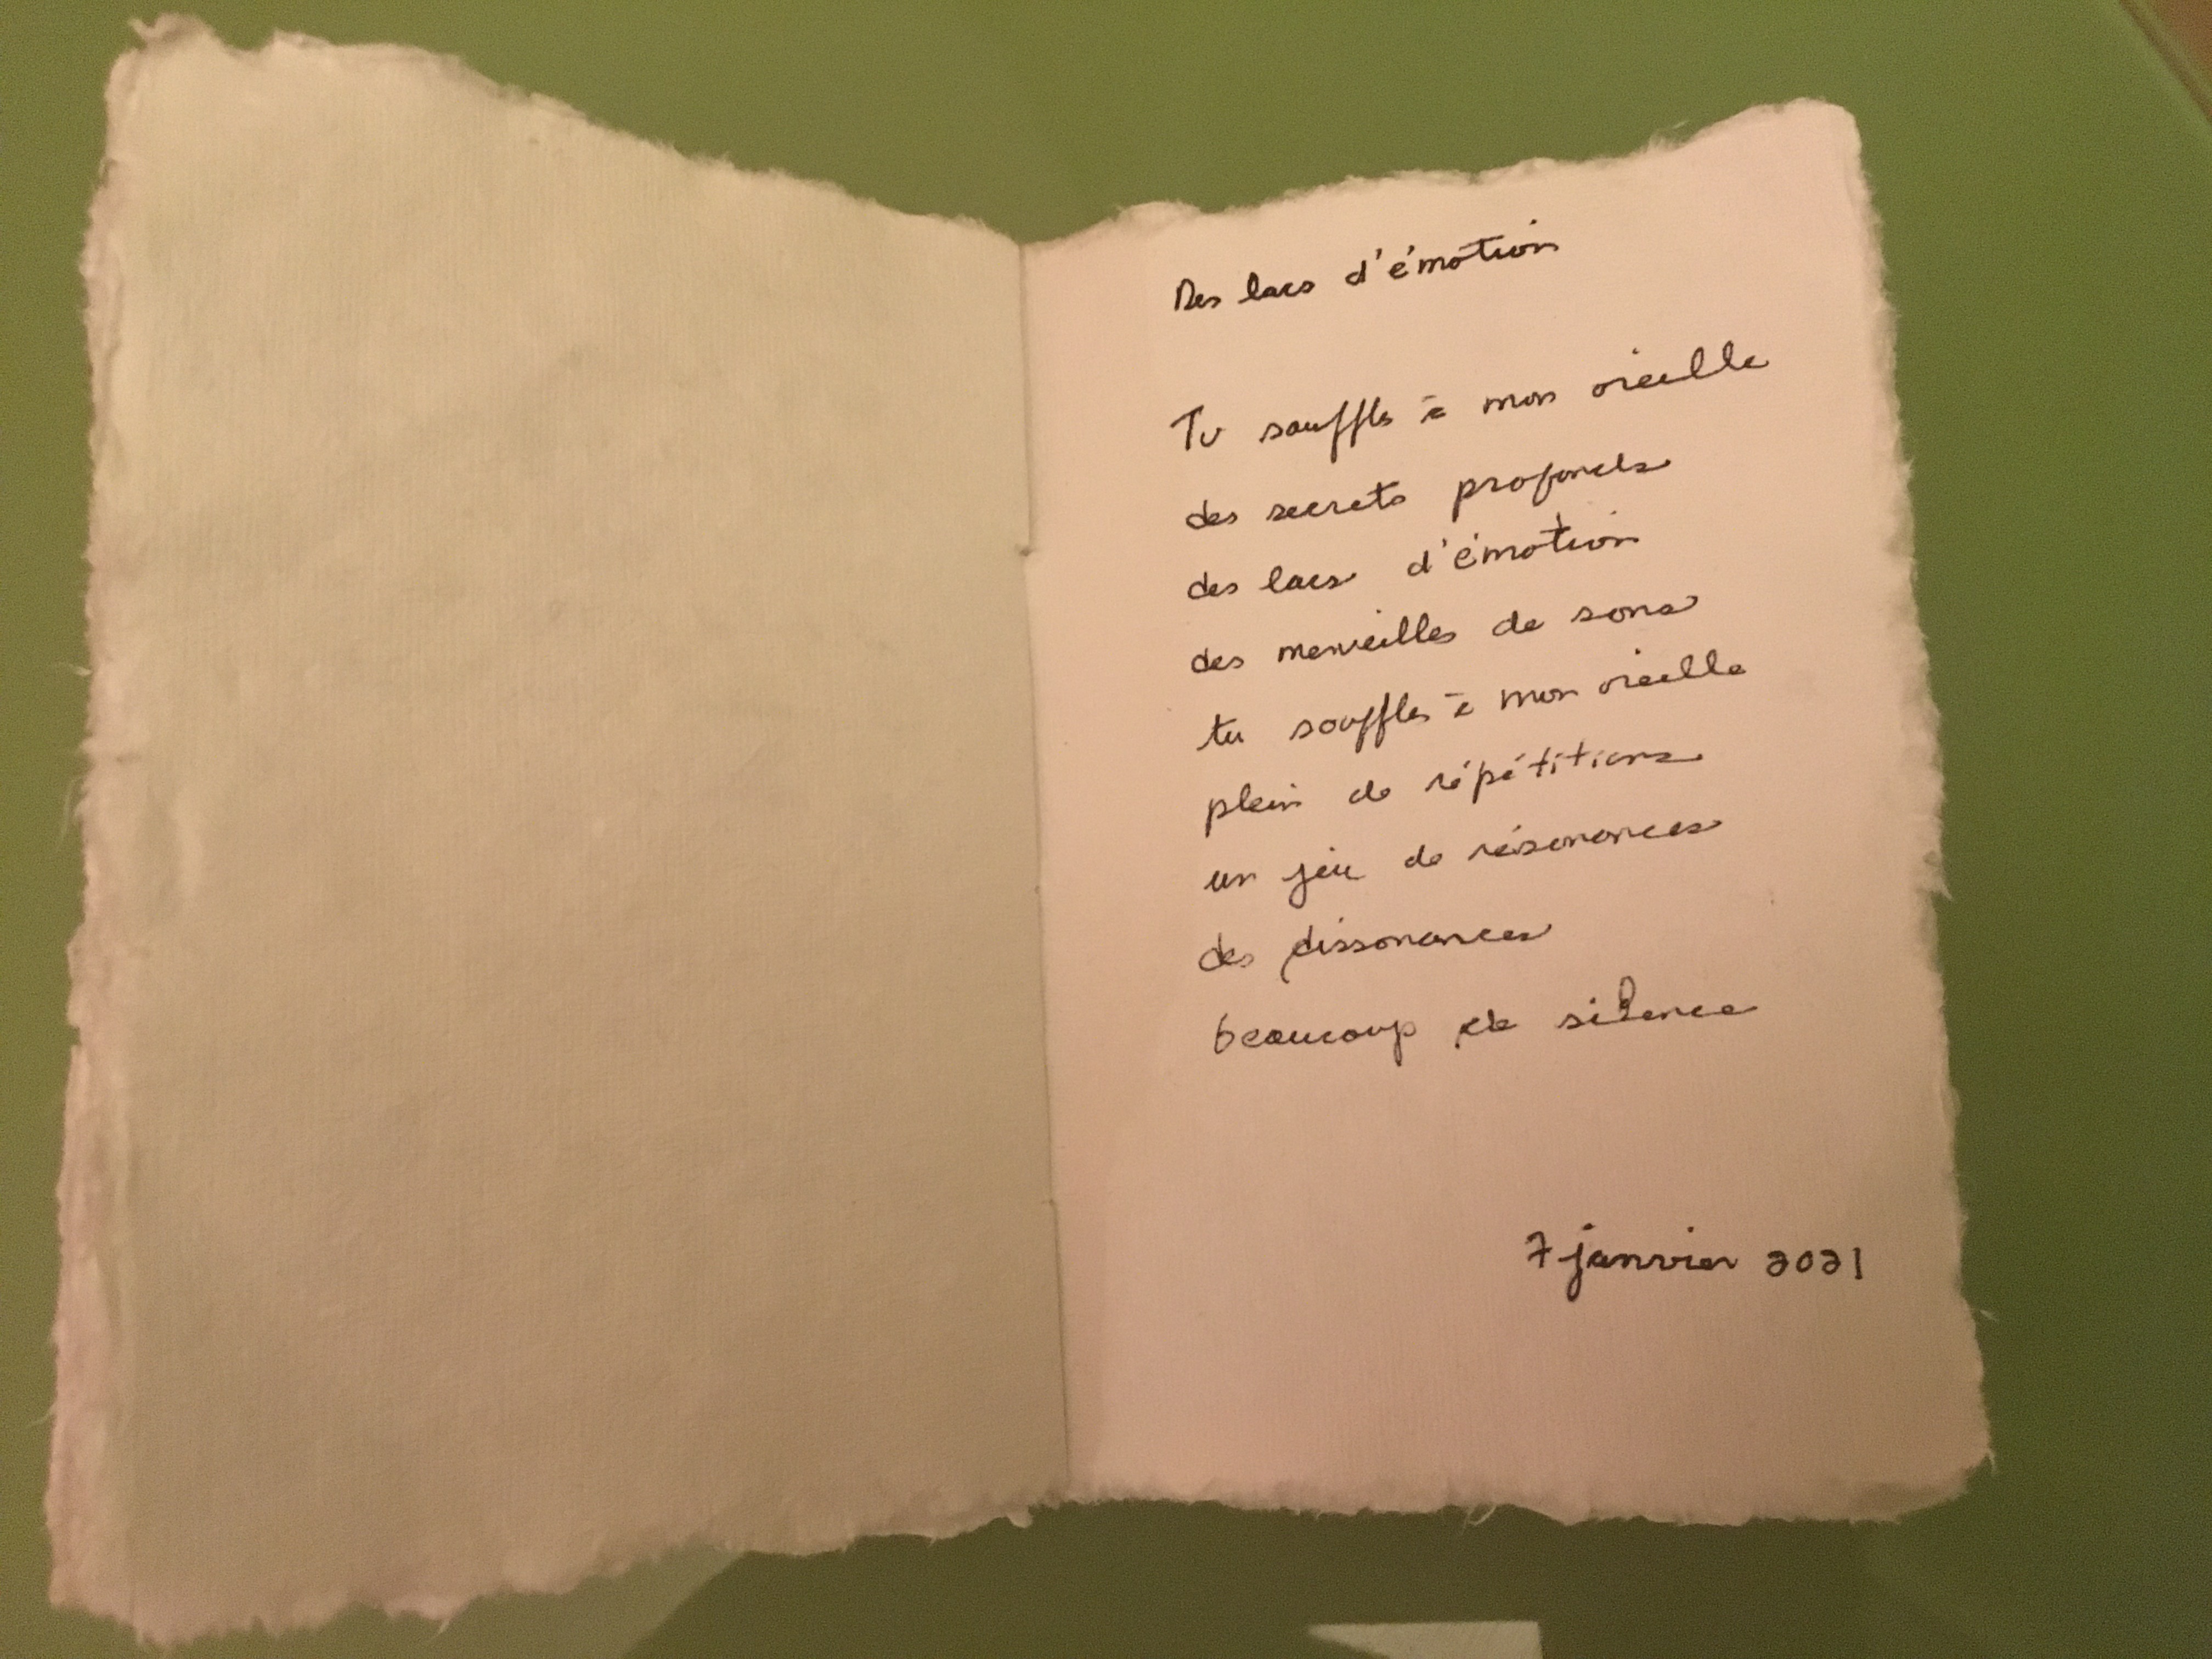 Des lacs d'émotion
Tu souffles à mon oreille
des secrets profonds
des lacs d'émotion
des merveilles de sons
tu souffles à mon oreille
plein de répétitions
un jeu de résonances
des dissonances
beaucoup de silence
7 janvier 2021